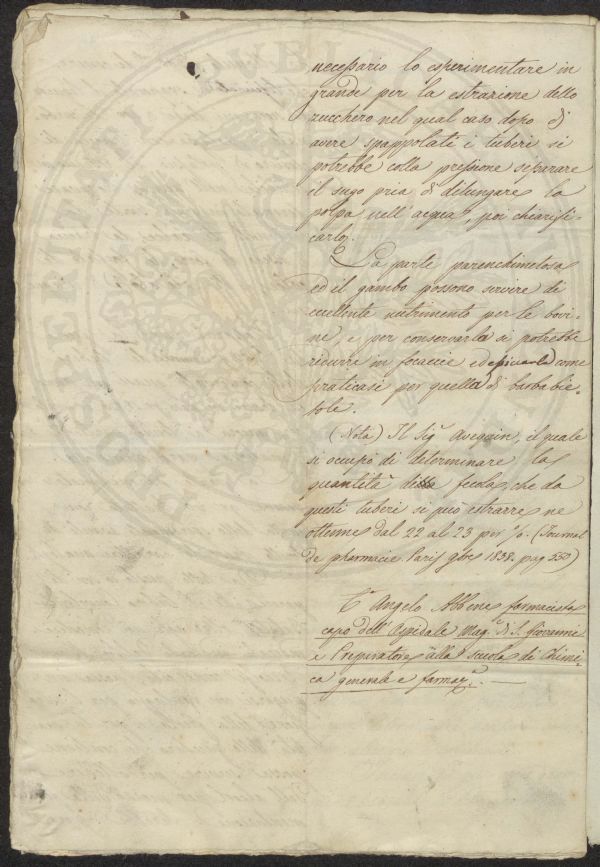 necessario lo esperimentare in
grande per la estrazione dello
zucchero nel qual caso dopo di
avere spappolati i tuberi si
potrebbe colla pressione separare
il sugo pria di dilungare la
polpa nell' acqua, poi chiarifi-
carlo.
La parte parenchimetosa
ed il gambo possono servire di
eccellente nutrimento per le bovi-
ne, e per conservarla si potrebbe
ridurre in focaccie ed come
praticasi per quella di barbabie-
tole.
(Nota) Il Sig.r Avequin, il quale
si occupò di determinare la
quantità della fecola, che da
questi tuberi si può estrarre ne
ottenne dal 22 al 23 per %. (Journal
de pharmacie. Paris 1838. pag 550)
Angelo Abbene farmacista
capo dell' Ospedale Mag.e di S. Giovanni
e Preparatore alla scuola di Chimi-
ca generale e farmac.a